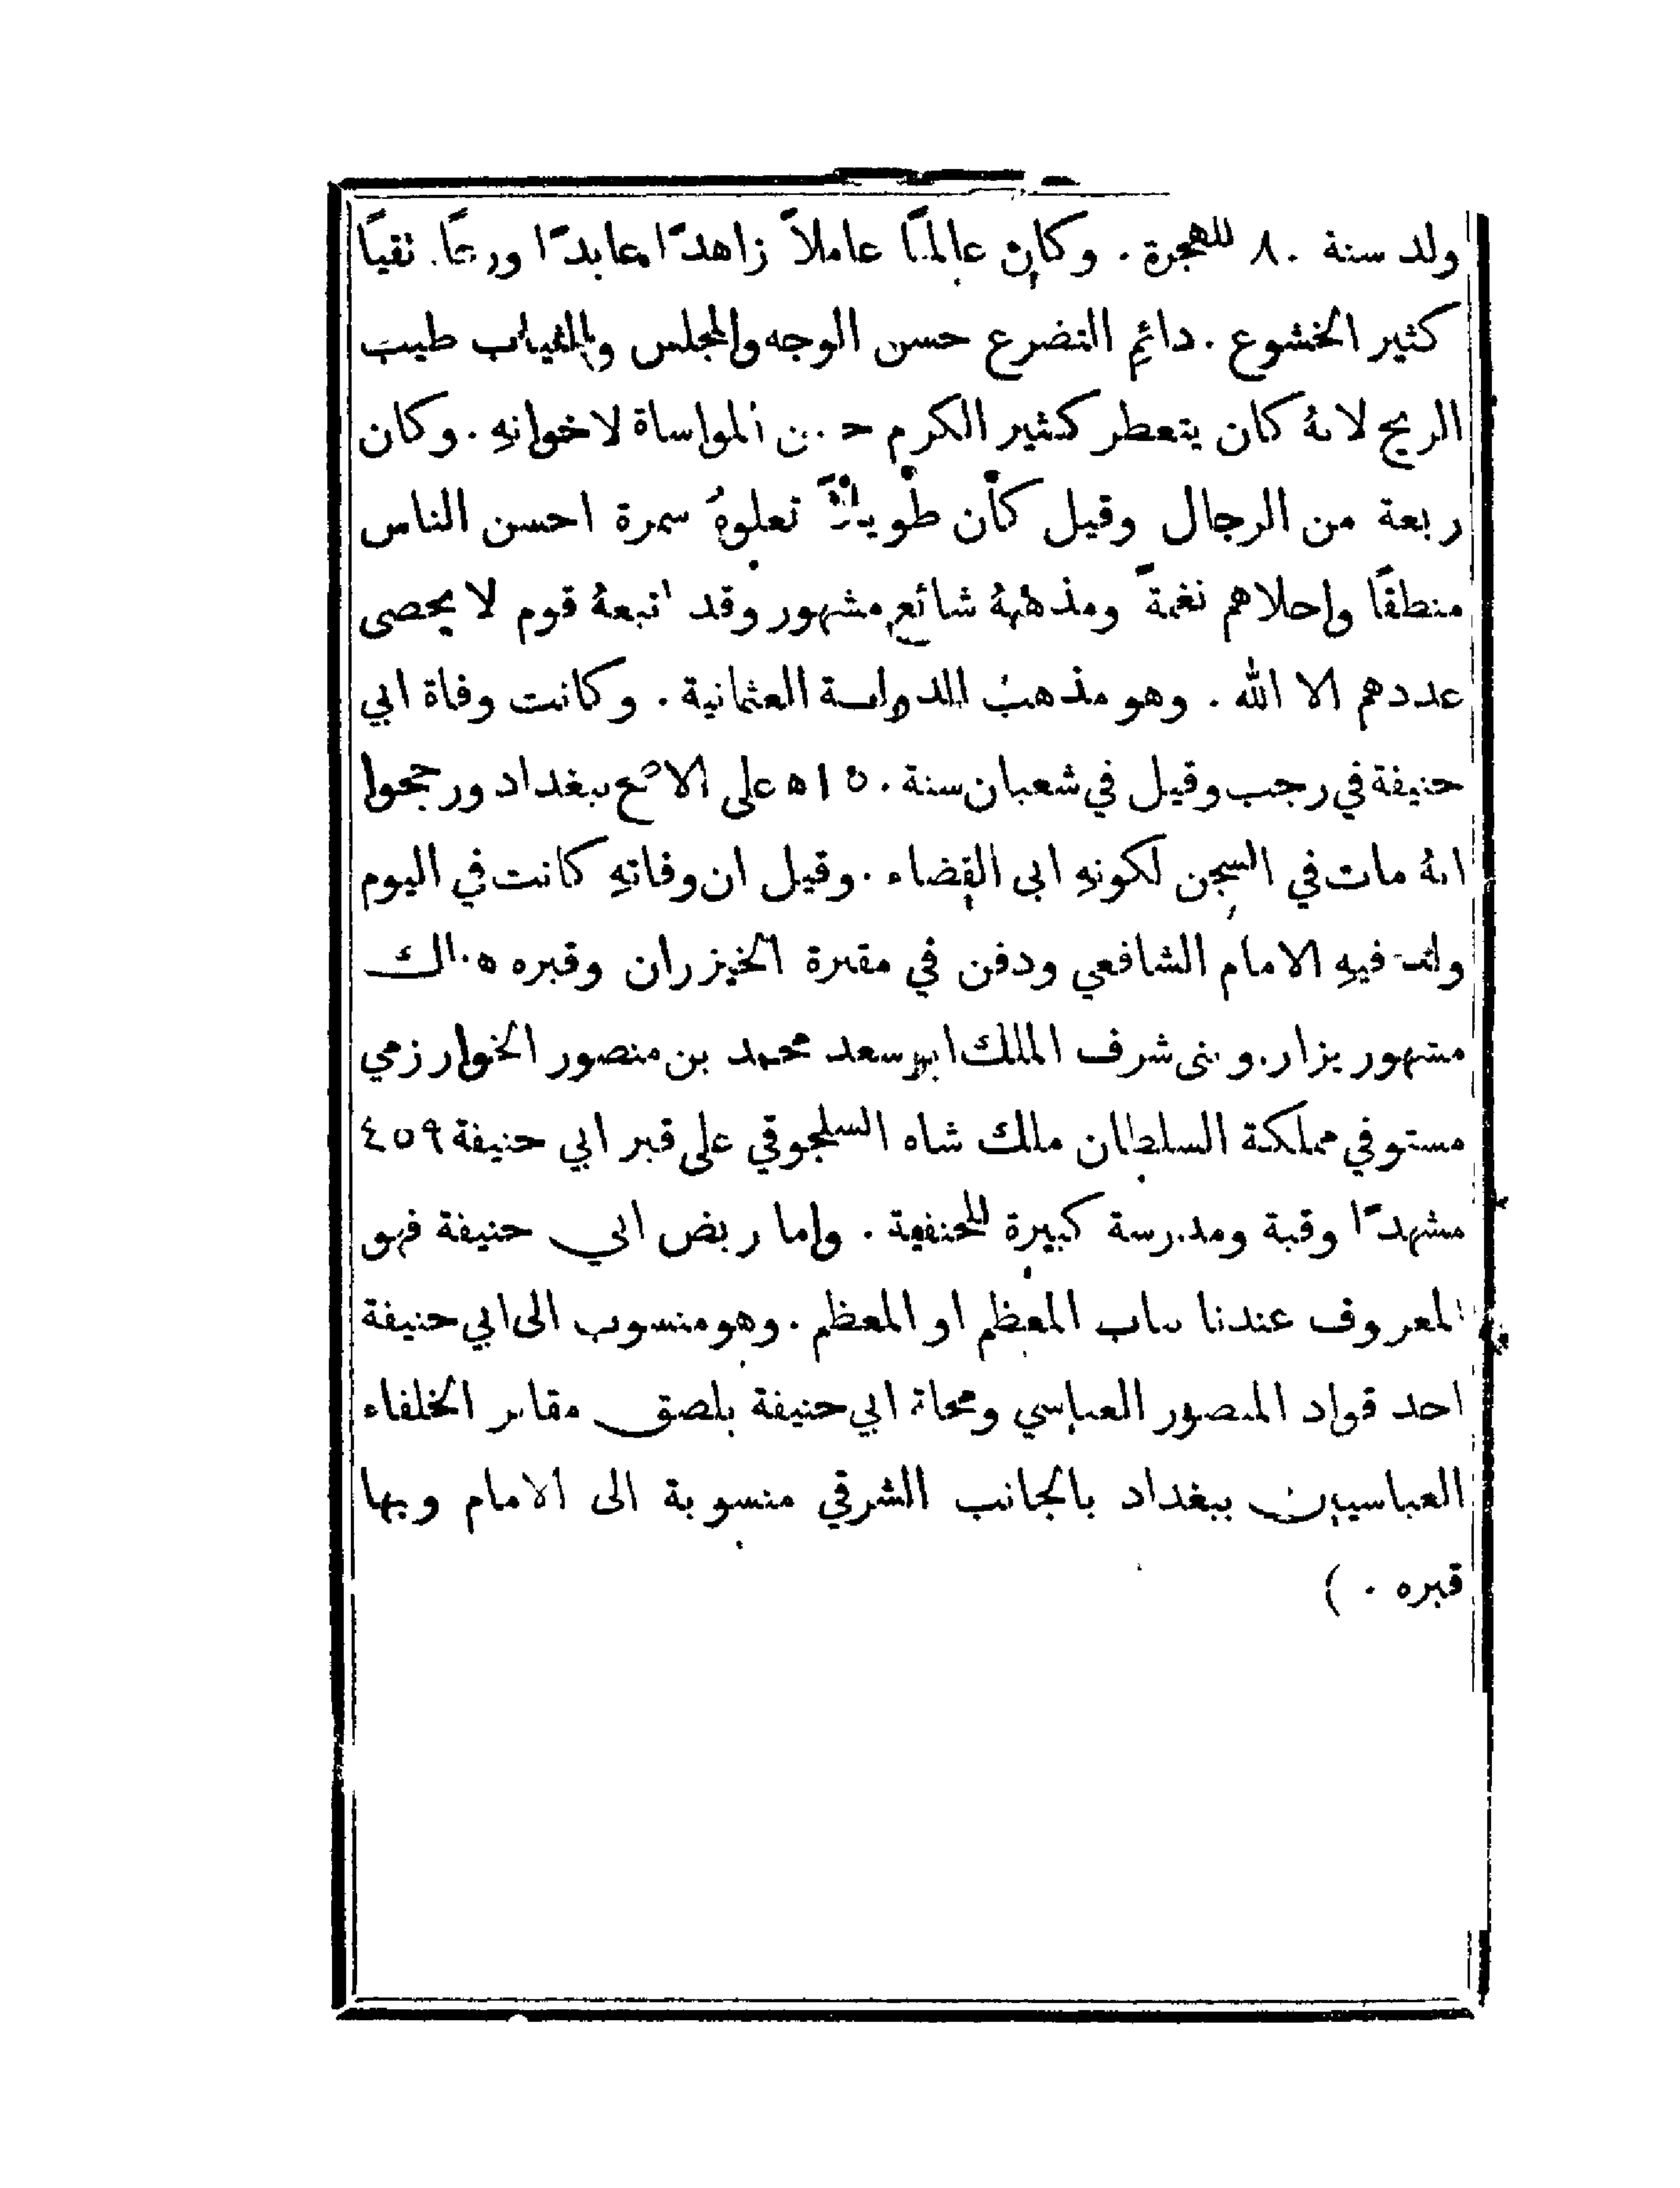 ولد سنة ٨٠ للهجرة . وكان عالمًا عاملاً زاهدًا عابدًا ورعًا تقيًا
كثير الخشوع . دائم التضرع حسن الوجه والمجلس والثياب طيب
الريح لانهُ كان يتعطر كثير الكرم حسن المواساة لاخوانهِ . وكان
ربعة من الرجال وقيل كان طويلاً تعلوهُ سمرة احسن الناس
منطقًا واحلاهم نغمةً ومذهبهُ شائع مشهور وقد اتبعهُ قوم لا يحصى
عددهم الا الله . وهو مذهب الدولة العثمانية . وكانت وفاة ابي
حنيفة في رجب وقيل في شعبان سنة ١٥٠ ه على الاصح ببغداد ورجحوا
انهُ مات في السجن لكونهِ ابى القضاء . وقيل ان وفاتهِ كانت في اليوم
ولد فيهِ الامام الشافعي ودفن في مقبرة الخيزران وقبره هناك
مشهور يزار . وبنى شرف الملك ابو سعد محمد بن منصور الخوارزمي
مستوفي مملكة السلطان ملك شاه السلجوقي على قبر ابي حنيفة ٤٥٩
مشهدًا وقبة ومدرسة كبيرة للحنفية . واما ربض ابي حنيفة فهو
المعروف عندنا بباب المعظم او المعظم . وهو منسوب الى ابي حنيفة
احد قواد المنصور العباسي ومحلة ابي حنيفة بلصق مقابر الخلفاء
العباسيين ببغداد بالجانب الشرقي منسوبة الى الامام وبها
قبره . )